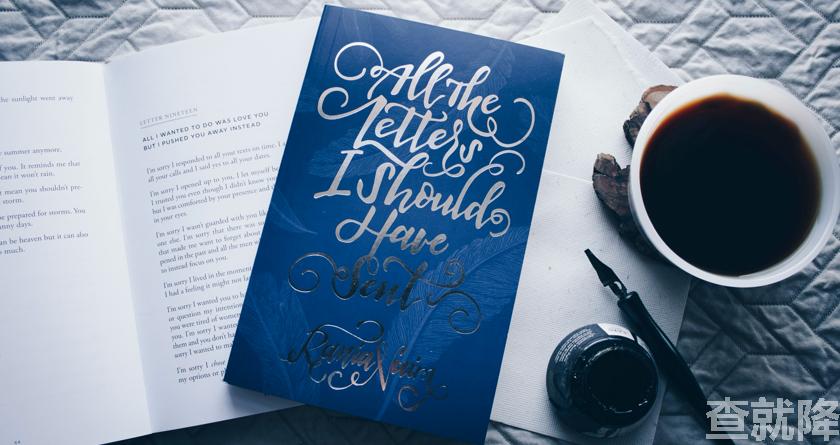 the sunlight went away
summer anymore.
of you. It reminds me that
ean it won't rain.
t mean you shouldn't pre-
storm.
be prepared for storms. You
nny days.
an be heaven but it can also
much.
64
LETTER NINETEEN
ALL I WANTED TO DO WAS LOVE YOU
BUT I PUSHED YOU AWAY INSTEAD
I'm sorry I responded to all your texts on time. I
all your calls and I said yes to all your dates.
I'm sorry I opened up to you, I let myself be
I trusted you even though I didn't know you
but I was comforted by your presence and th
in your eyes.
I'm sorry I wasn't guarded with you like
one else. I'm sorry that there was so
that made me want to forget about
pened in the past and all the men w
to instead focus on you.
I'm sorry I lived in the moment
I had a feeling it might not las
I'm sorry I wanted you to h
or question my intention
you were tired of women
them and you don't ha
sorry I wanted to ma
I'm sorry I chose
my options or p
All the
Letters
I Should
Have
Sent
Rania Naim
查就隆